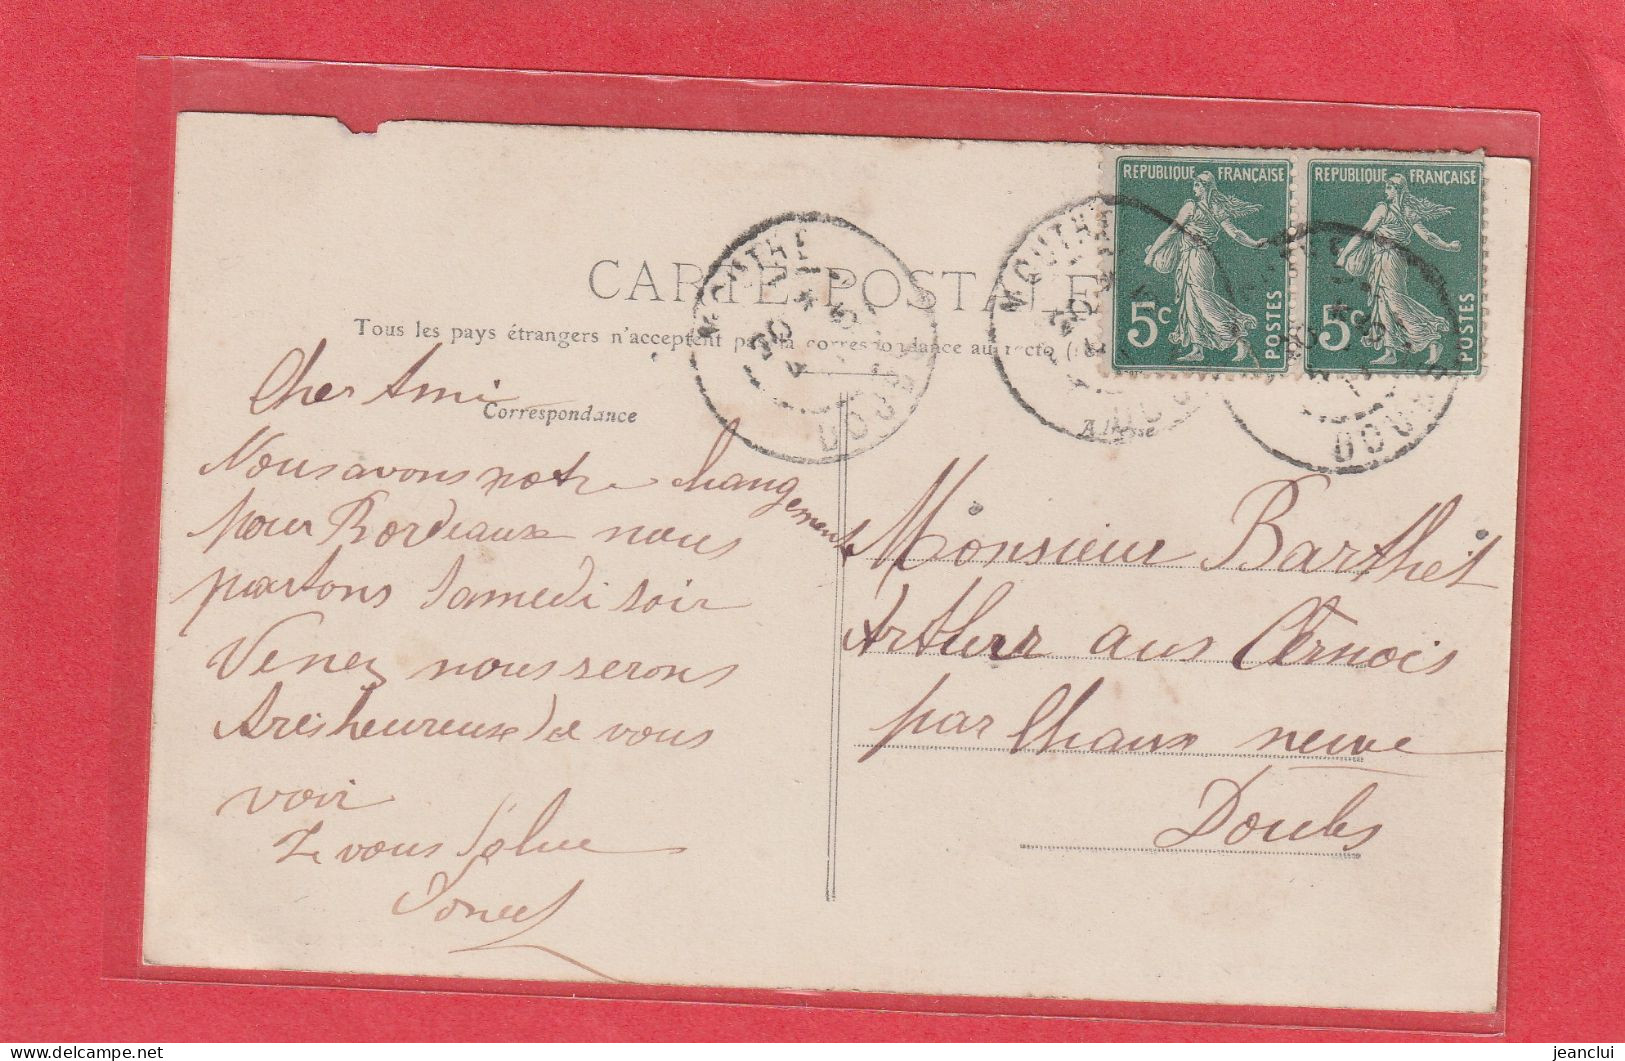 REPUBLIQUE FRANÇAISE
5c POSTES
REPUBLIQUE FRANÇAISE
5c POSTES
MOUTHE
DOUBS
MOUTHE
DOUBS
DOUBS
CARTE POSTALE
Tous les pays étrangers n'acceptent pas la correspondance au recto
Correspondance
Adresse
Cher Ami
Nous avons notre changement
pour Bordeaux nous
partons Samedi soir
Venez nous serons
très heureux de vous
voir
Je vous salue
Monsieur Barthet
Arthur aus Cernois
par Chaux neuve
Doubs
jeanclui